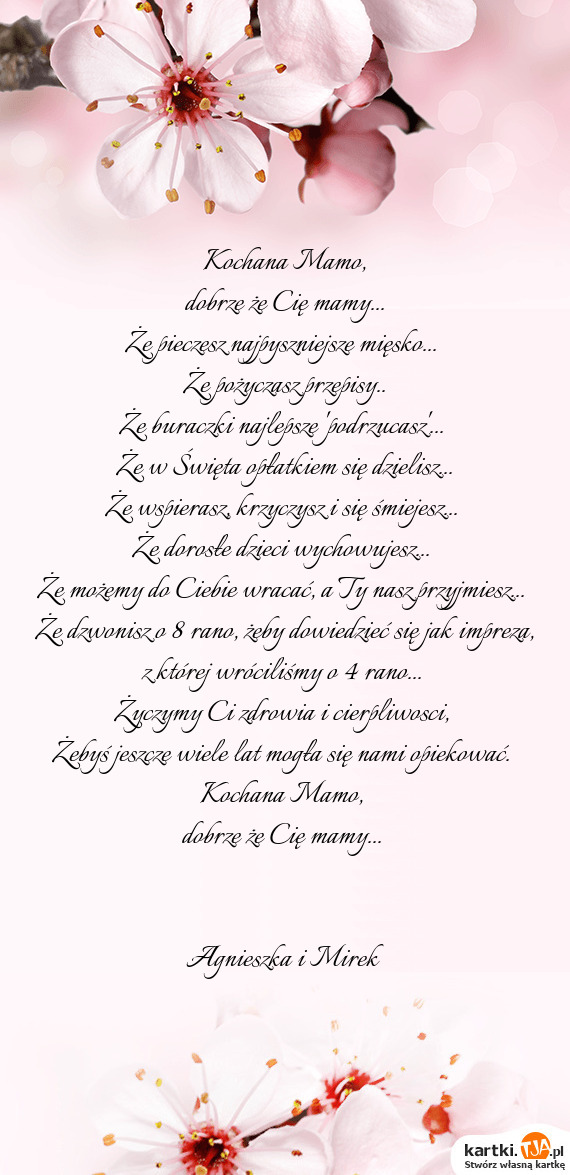 Kochana Mamo,
dobrze że Cię mamy...
Że pieczesz najpyszniejsze mięsko...
Że pożyczasz przepisy..
Że buraczki najlepsze 'podrzucasz'...
Że w Święta opłatkiem się dzielisz...
Że wspierasz, krzyczysz i się śmiejesz...
Że dorosłe dzieci wychowujesz...
Że możemy do Ciebie wracać, a Ty nasz przyjmiesz...
Że dzwonisz o 8 rano, żeby dowiedzieć się jak impreza,
z której wróciliśmy o 4 rano...
Życzymy Ci zdrowia i cierpliwosci,
Żebyś jeszcze wiele lat mogła się nami opiekować.
Kochana Mamo,
dobrze że Cię mamy...
Agnieszka i Mirek
kartki.TJA.pl
Stwórz własną kartkę